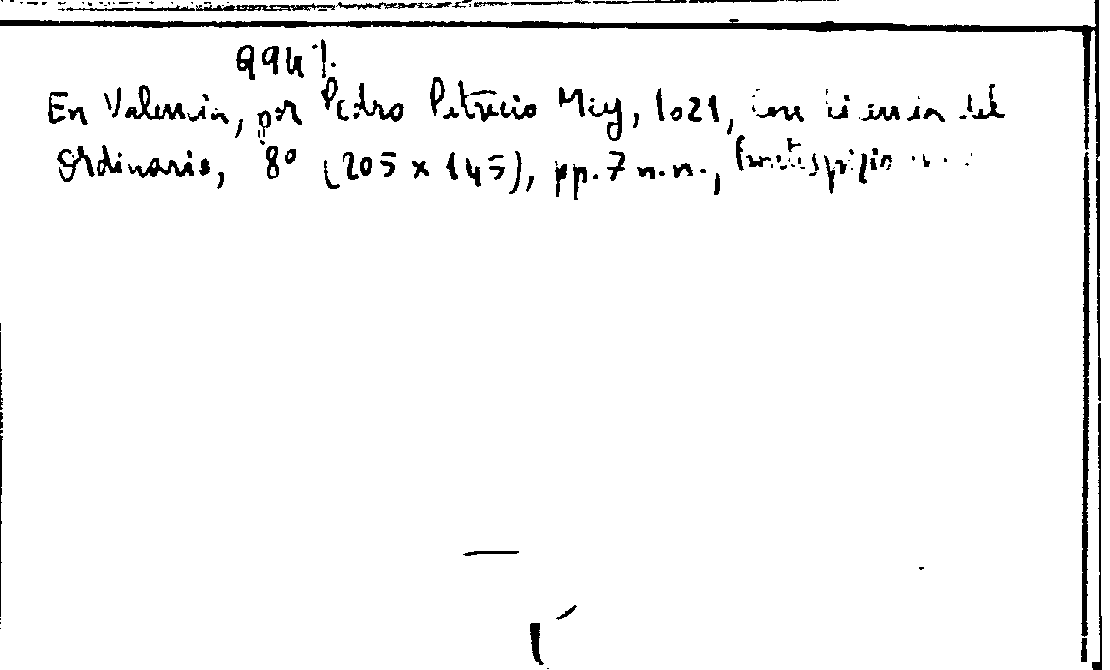 En Valencia, por Pedro Patricio Mey, 1621, con licencia del
Ordinario, 8º (205 x 145), pp. 7 n.n., frontespizio